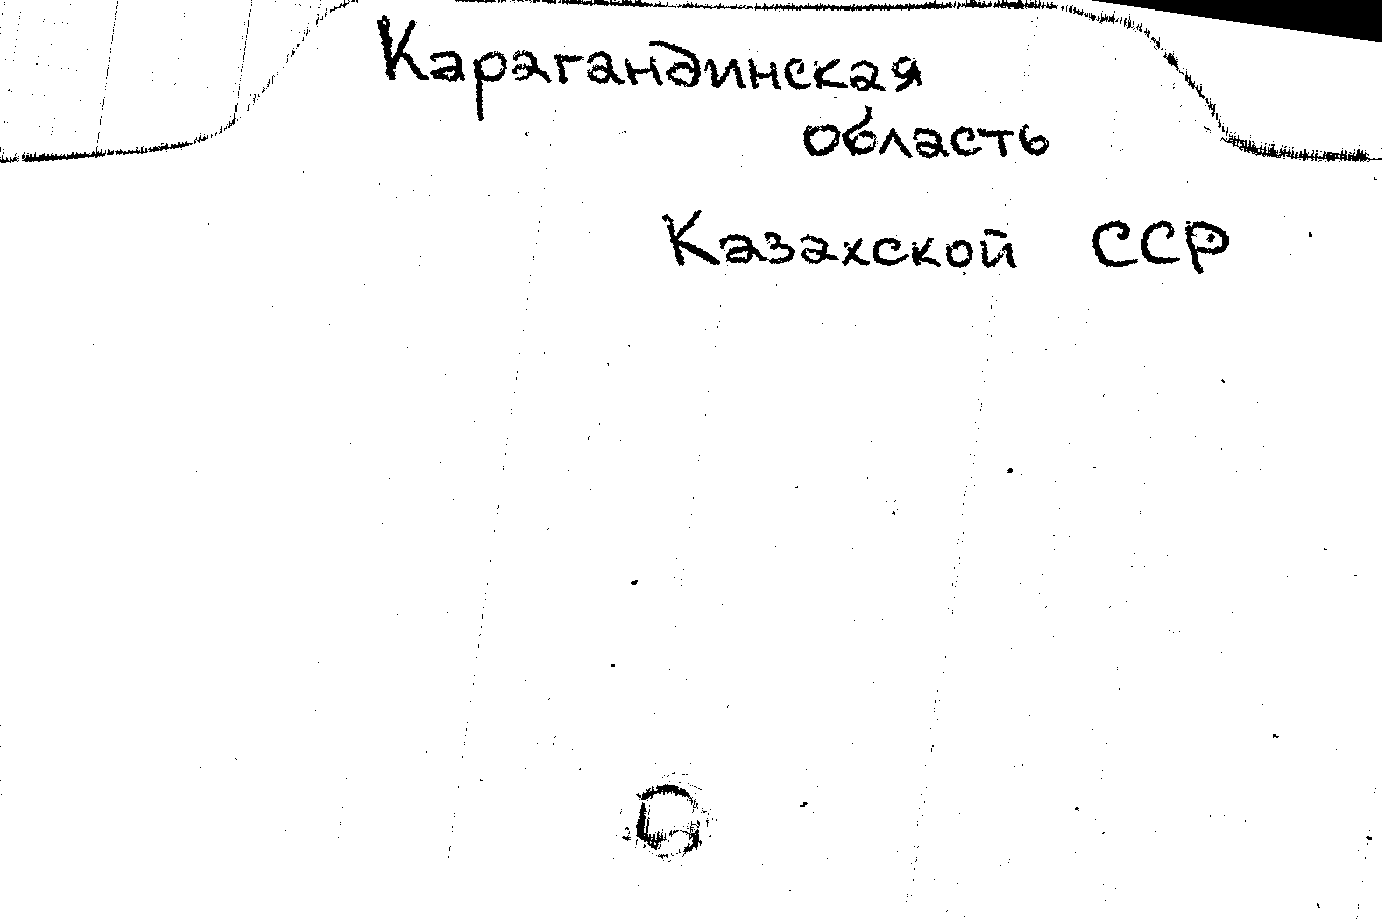 Карагандинская
область
Казахской ССР